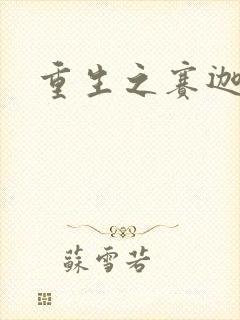 重生之赛迦
蘇雪若